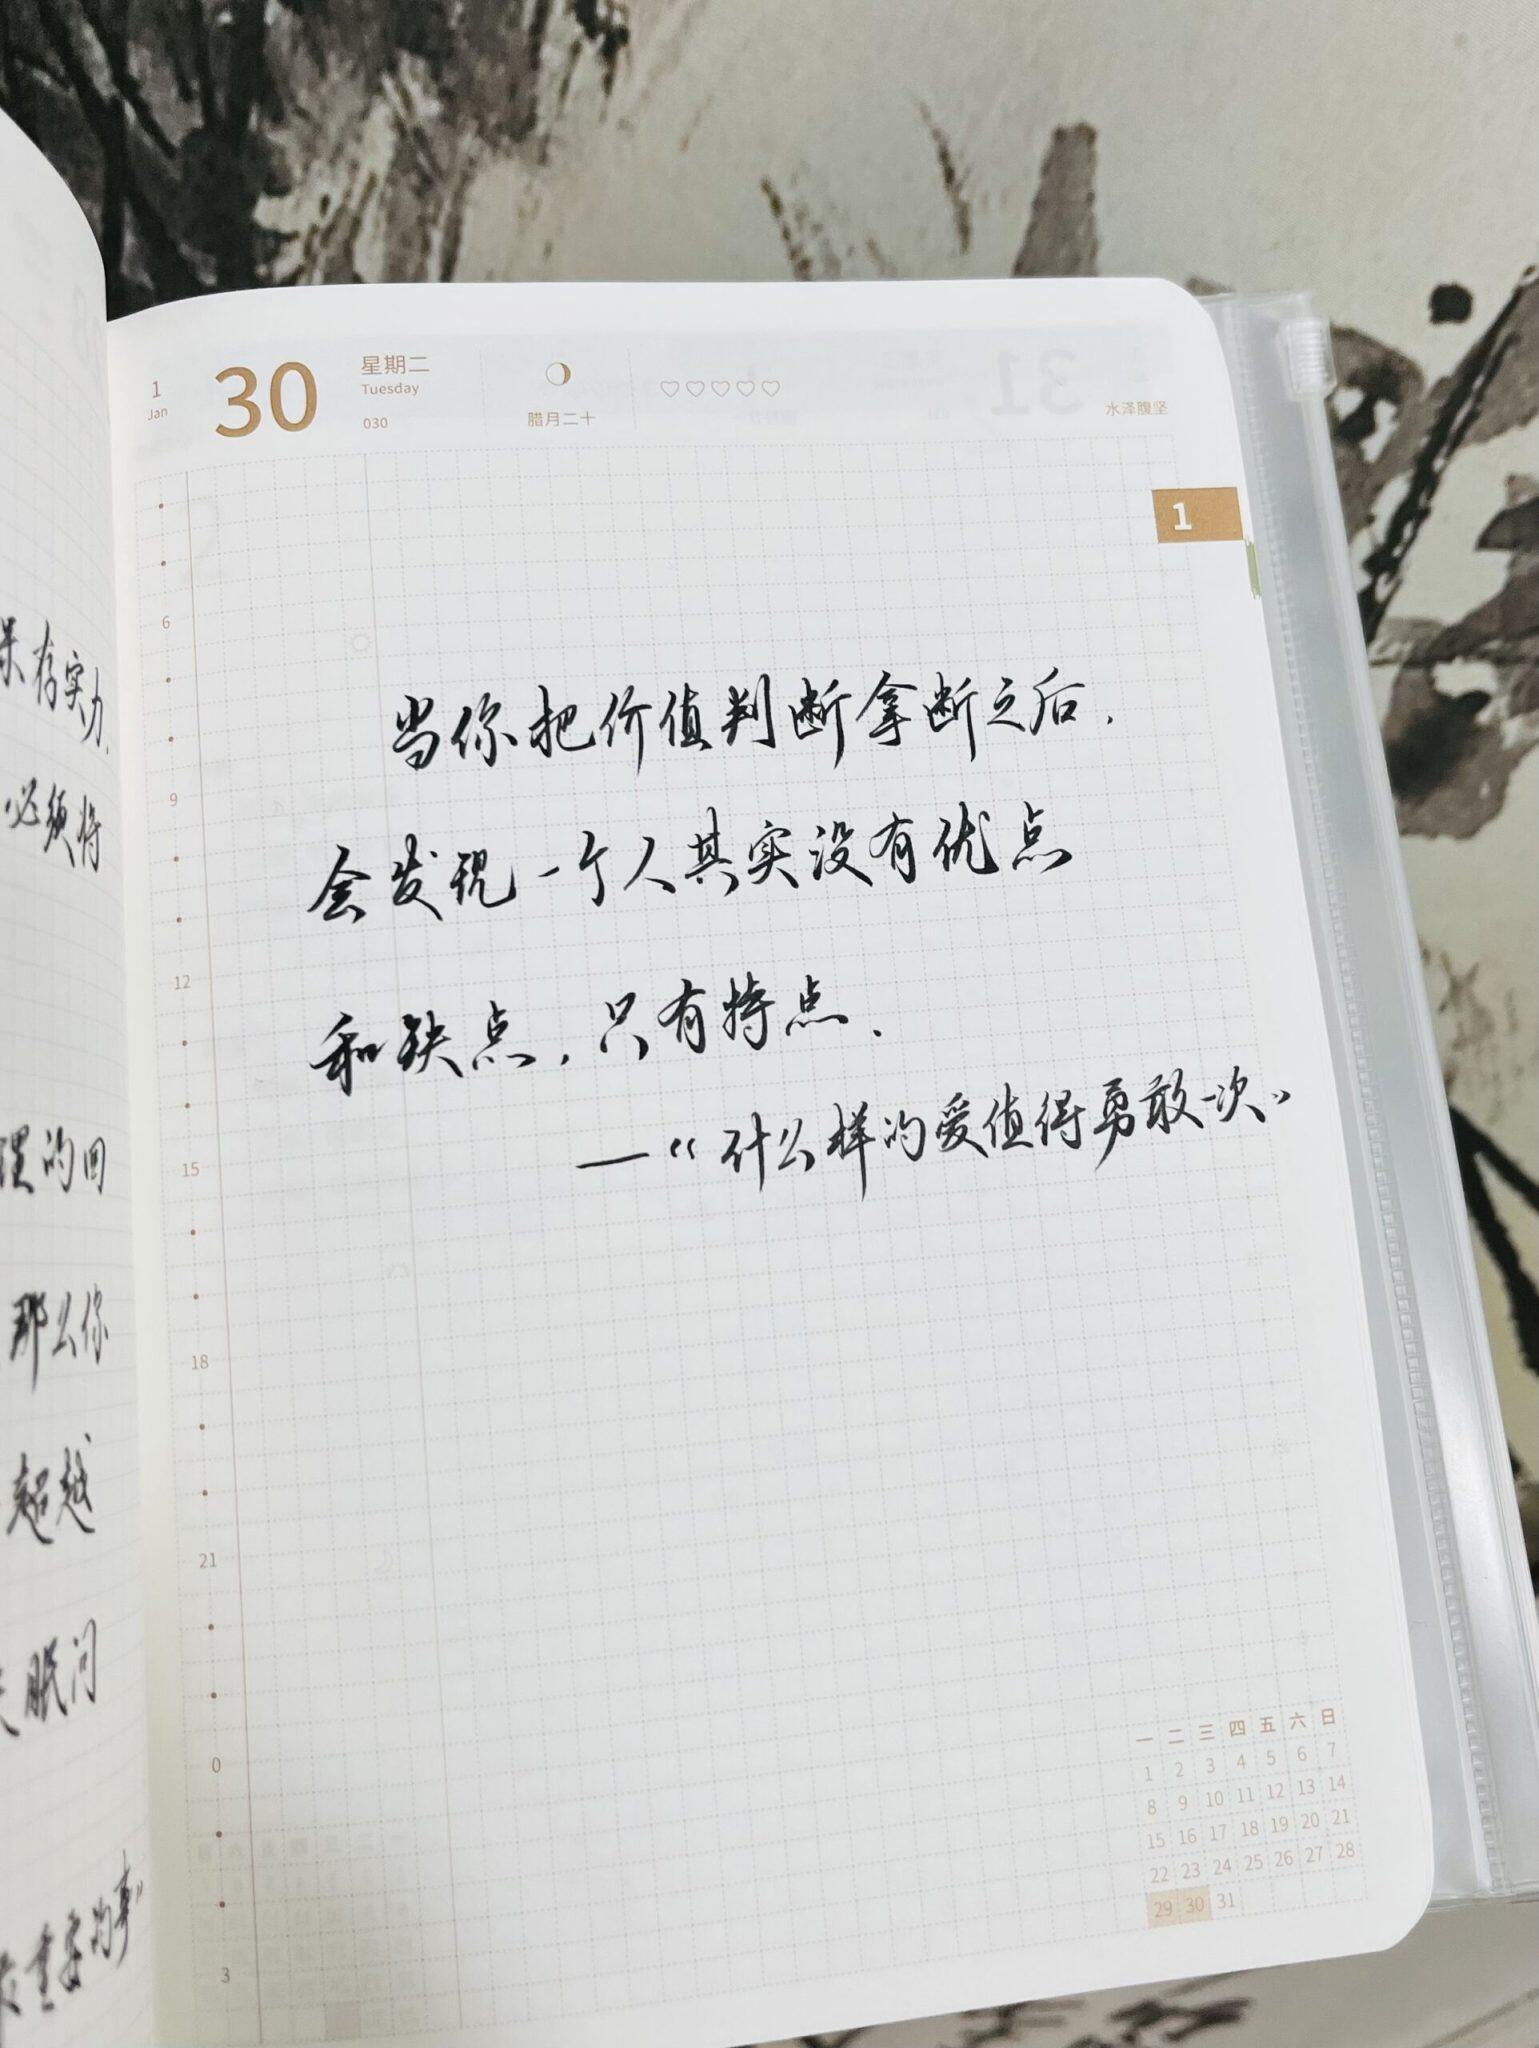 保存实力,
必须将
理的回
那么你
超越
眠问
重要的事”
1
Jan
30
星期二
Tuesday
030
腊月二十
31
水泽腹坚
1
6
9
12
15
18
21
0
3
当你把价值判断拿断之后,
会发现一个人其实没有优点
和缺点,只有特点、
—“什么样的爱值得勇敢一次”
一 二 三 四 五 六 日
1 2 3 4 5 6 7
8 9 10 11 12 13 14
15 16 17 18 19 20 21
22 23 24 25 26 27 28
29 30 31